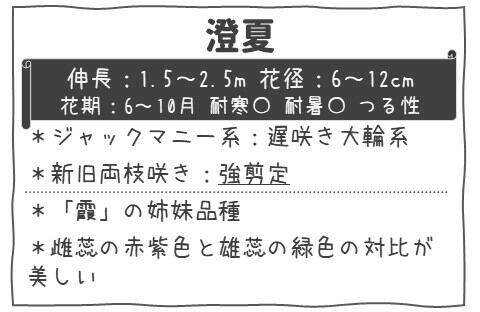 澄夏
伸長：1.5～2.5m 花径：6～12cm
花期：6～10月 耐寒〇 耐暑〇 つる性
＊ジャックマニー系：遅咲き大輪系
＊新旧両枝咲き：強剪定
＊「霞」の姉妹品種
＊雌蕊の赤紫色と雄蕊の緑色の対比が
美しい